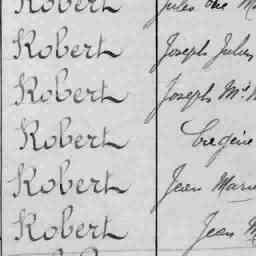 Robert Jules
Robert Joseph Jules
Robert Joseph M
Robert Eugène
Robert Jean Marie
Robert Jean M